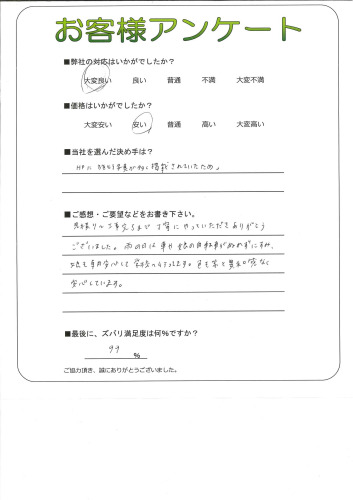 お客様アンケート
■弊社の対応はいかがでしたか？
大変良い 良い 普通 不満 大変不満
■価格はいかがでしたか？
大変安い 安い 普通 高い 大変高い
■当社を選んだ決め手は？
HPに 掲載されていたため。
■ご感想・ご要望などをお書き下さい。
見積りから工事完了まで丁寧にやっていただきありがとう
ございました。雨の日は車や娘の自転車がぬれずにすみ、
娘も毎日安心して学校へ行ってます。色も家と違和感なく
安心しています。
■最後に、ズバリ満足度は何%ですか？
99 %
ご協力頂き、誠にありがとうございました。